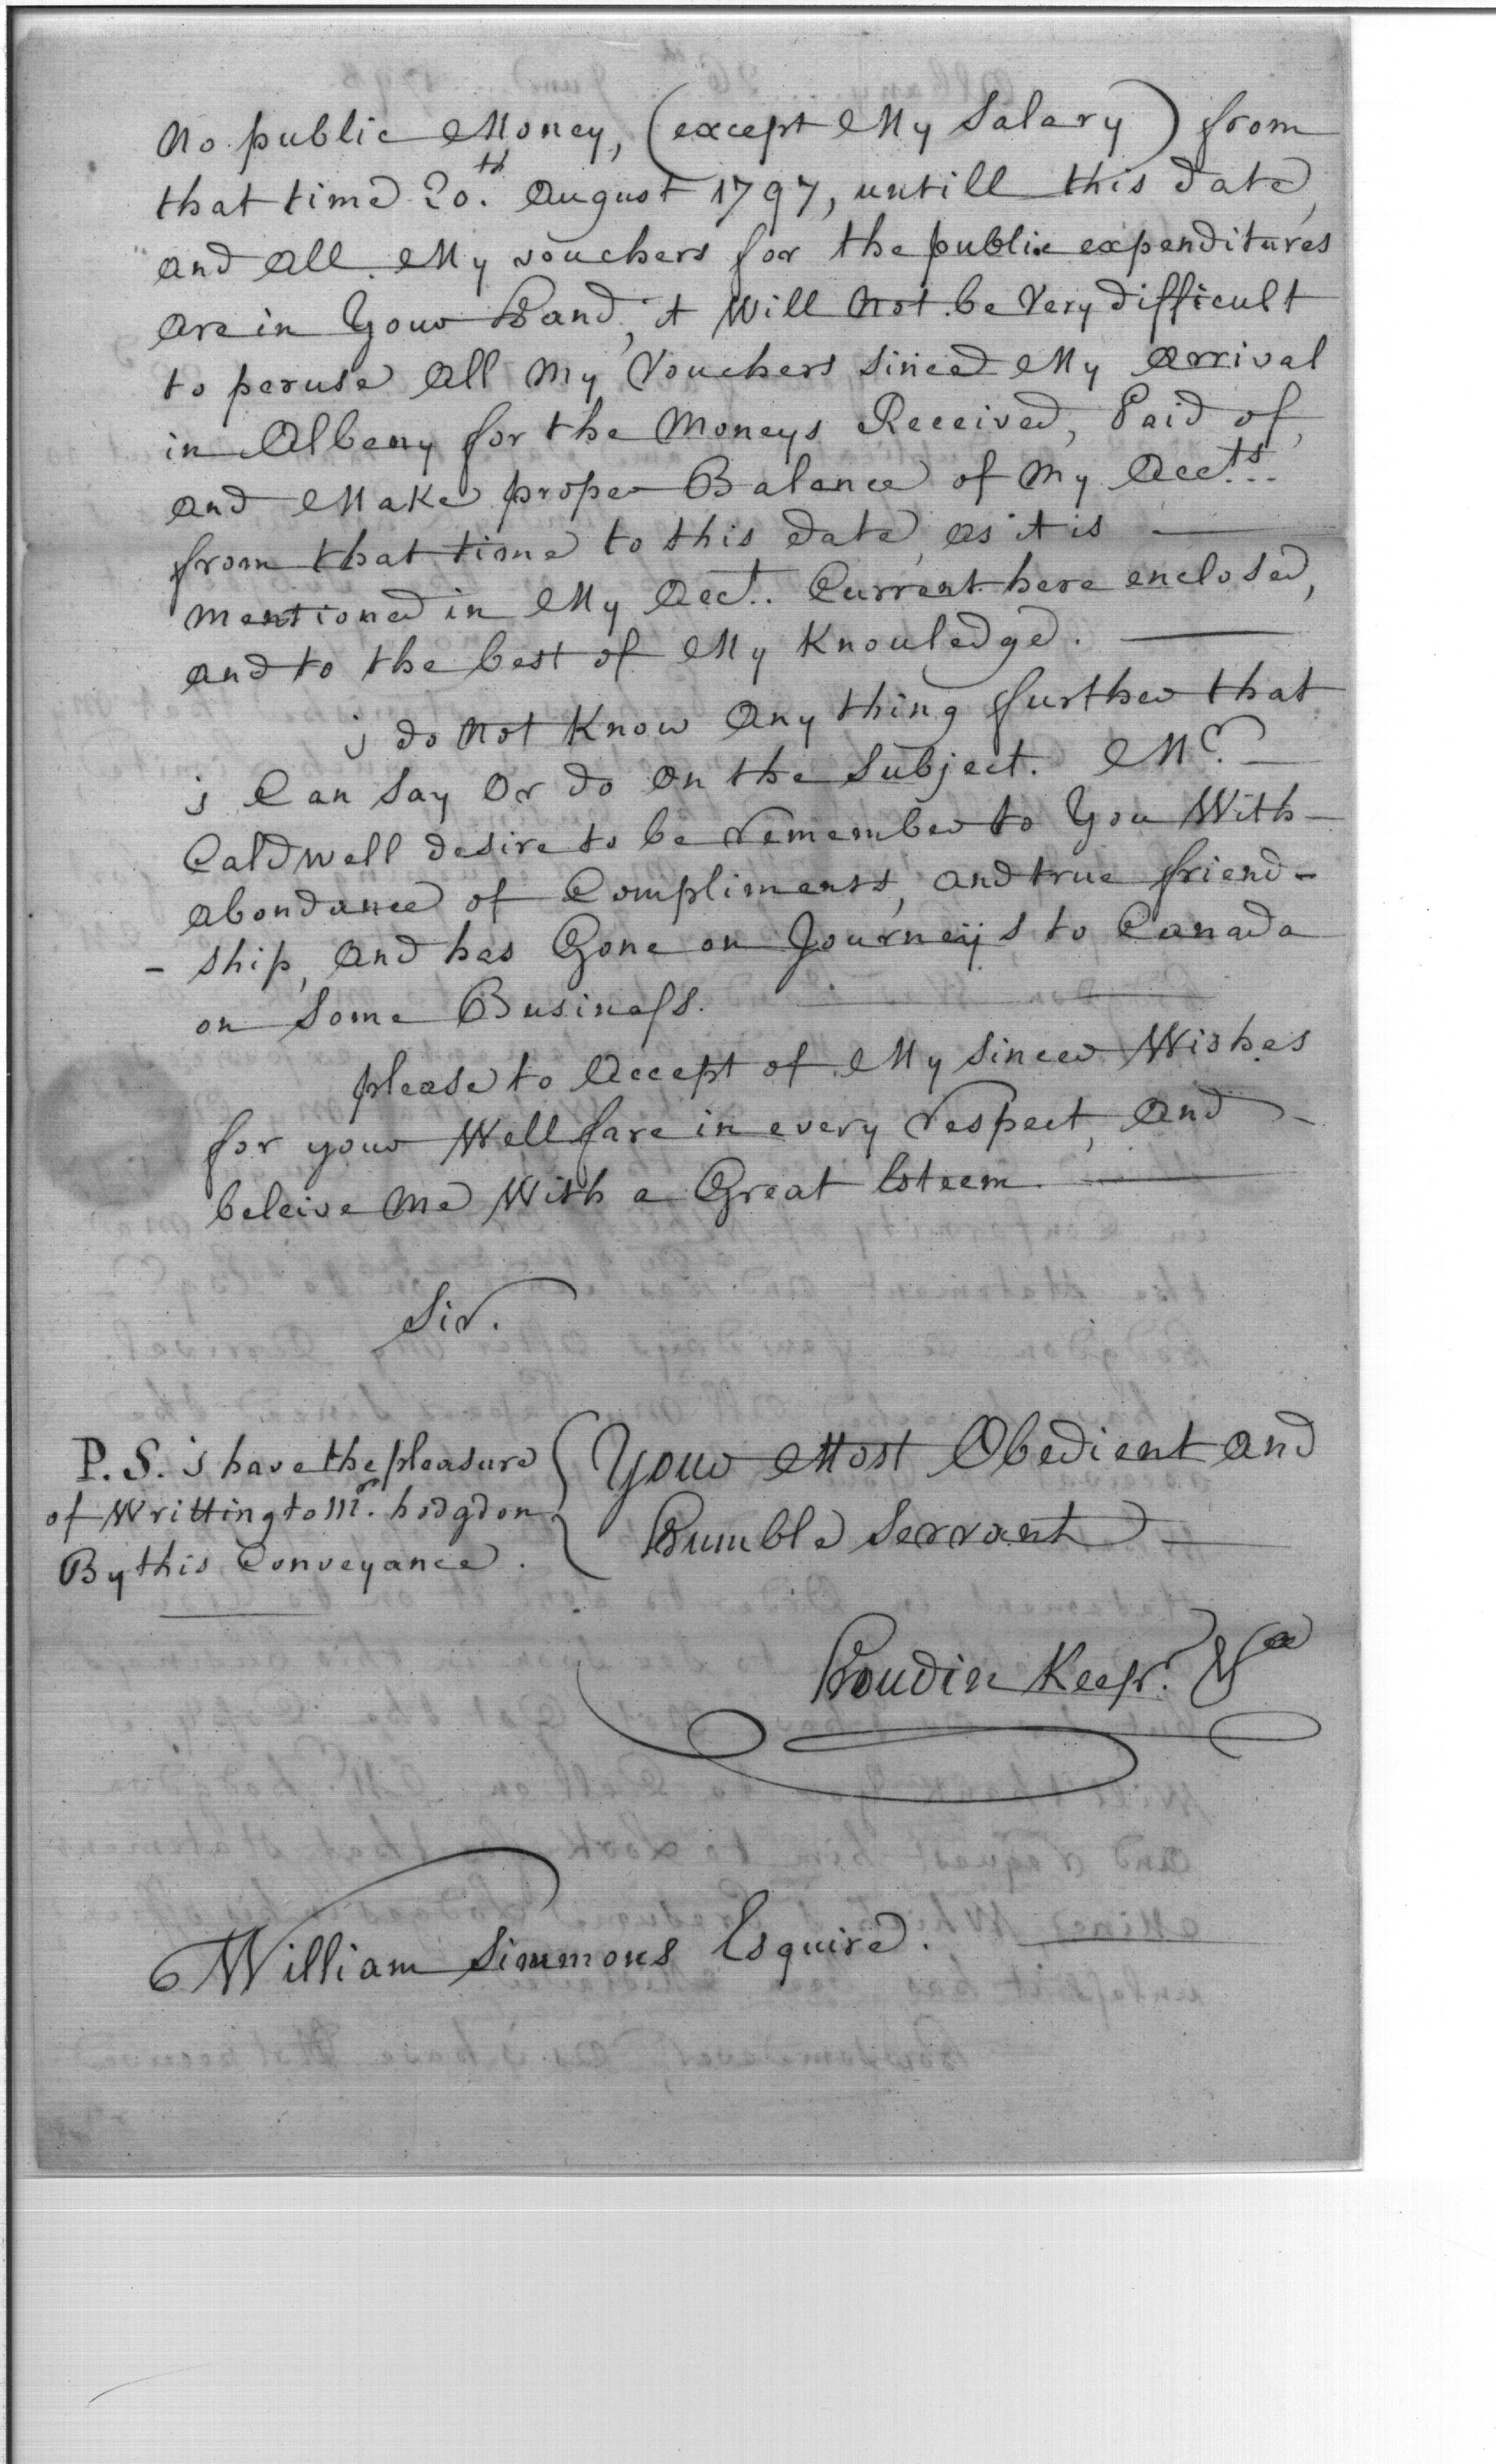 No public Money, (except My Salary) from
that time 20.th August 1797, untill this date,
and All My vouchers for the public expenditures
are in Your Hand, it Will Not be Very difficult
to peruse All My Vouchers Since My Arrival
in Albany for the Moneys Received, Paid of,
and Make proper Balance of My Acc.ts
from that time to this date, as it is
mentioned in My Acc.t Current here enclosed,
and to the best of My Knowledge.
j do Not Know Any thing further that
j Can Say Or do On the Subject. Mr.
Caldwell desire to be remember to You With
abondance of Compliments, and true friend-
- ship, and has Gone on Journeys to Canada
on Some Business.
please to Accept of My Sincer Wishes
for your Wellfare in every respect, and
beleive Me With a Great Esteem.
Sir.
Your Most Obedient and
Humble Servant
P.S. j have the pleasure
of Writting to Mr. hodgdon
By this Conveyance.
Keepr.
William Simmons Esquire.